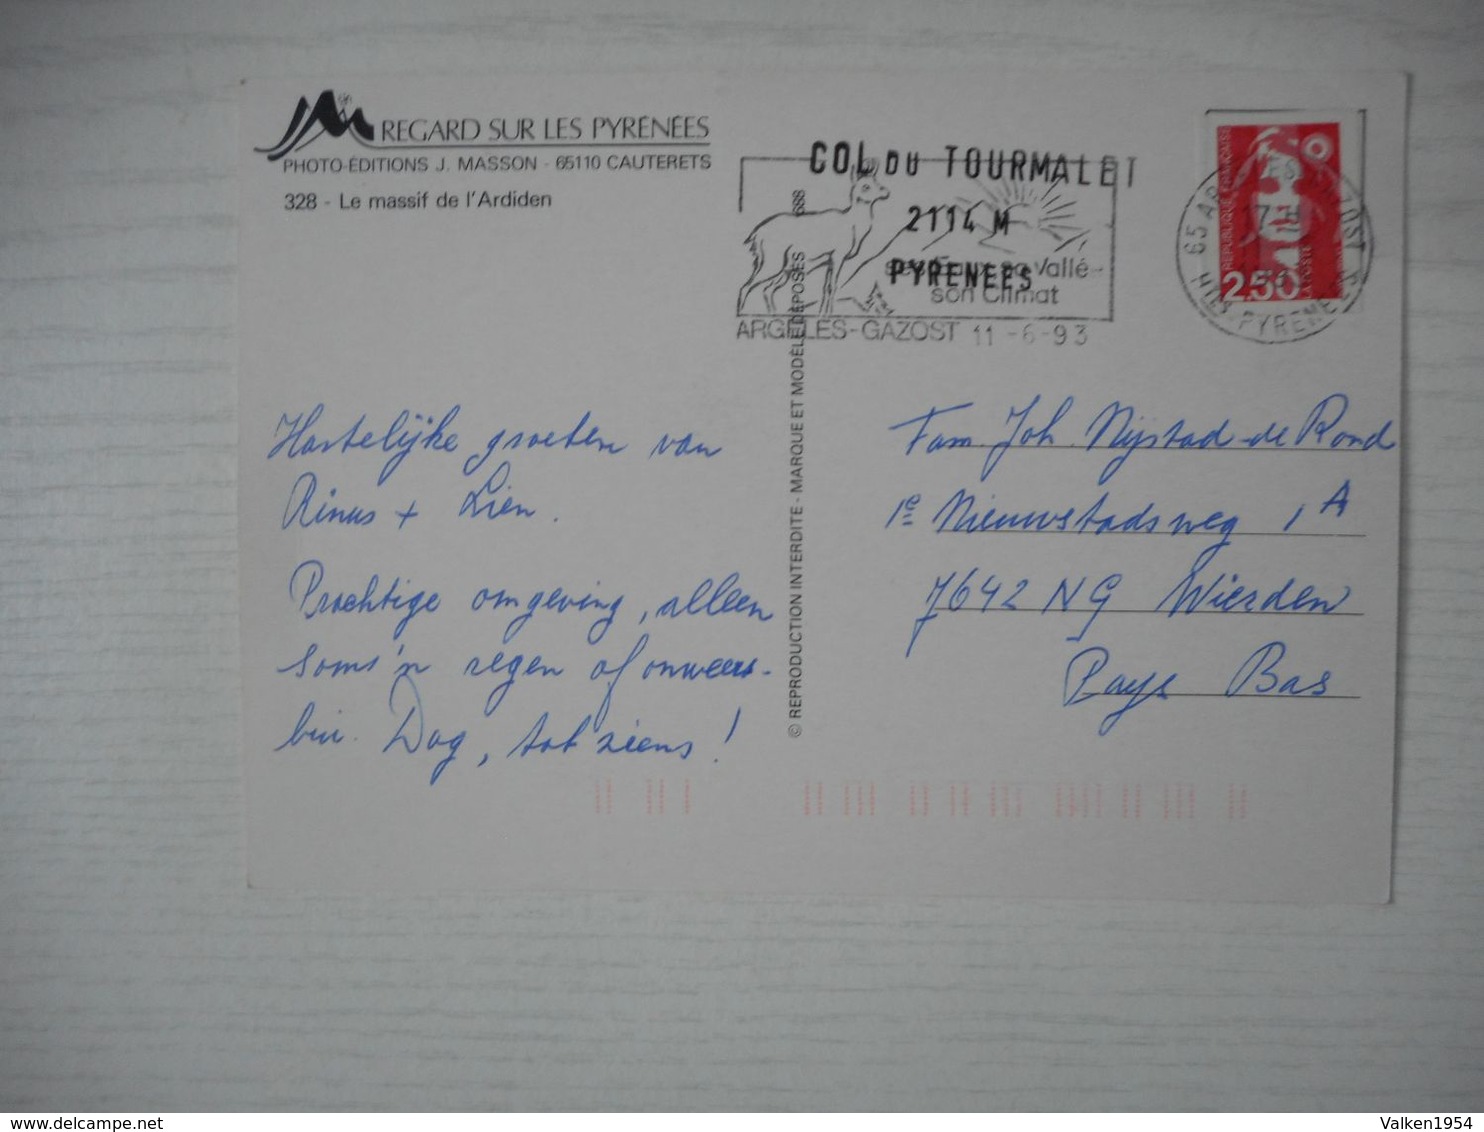 REGARD SUR LES PYRÉNÉES
PHOTO-ÉDITIONS J. MASSON - 65110 CAUTERETS
328 - Le massif de l'Ardiden
COL DU TOURMALET
2114 M
PYRENEES
ses Eaux, sa Vallé
son Climat
ARGELES-GAZOST 11 -6-93
RÉPUBLIQUE FRANÇAISE
2,50
LA POSTE
17 H
Hartelijke groeten van
Rinus + Lien.
Prachtige omgeving, alleen
soms 'n regen of onweers-
bui. Dag, tot ziens!
© REPRODUCTION INTERDITE - MARQUE ET MODÈLE DÉPOSÉS 688
Fam. Joh. Nijstad-de Rond
1e Nieuwstadsweg 1A
7642 NG Wierden
Pays Bas
delcampe.net
Valken1954